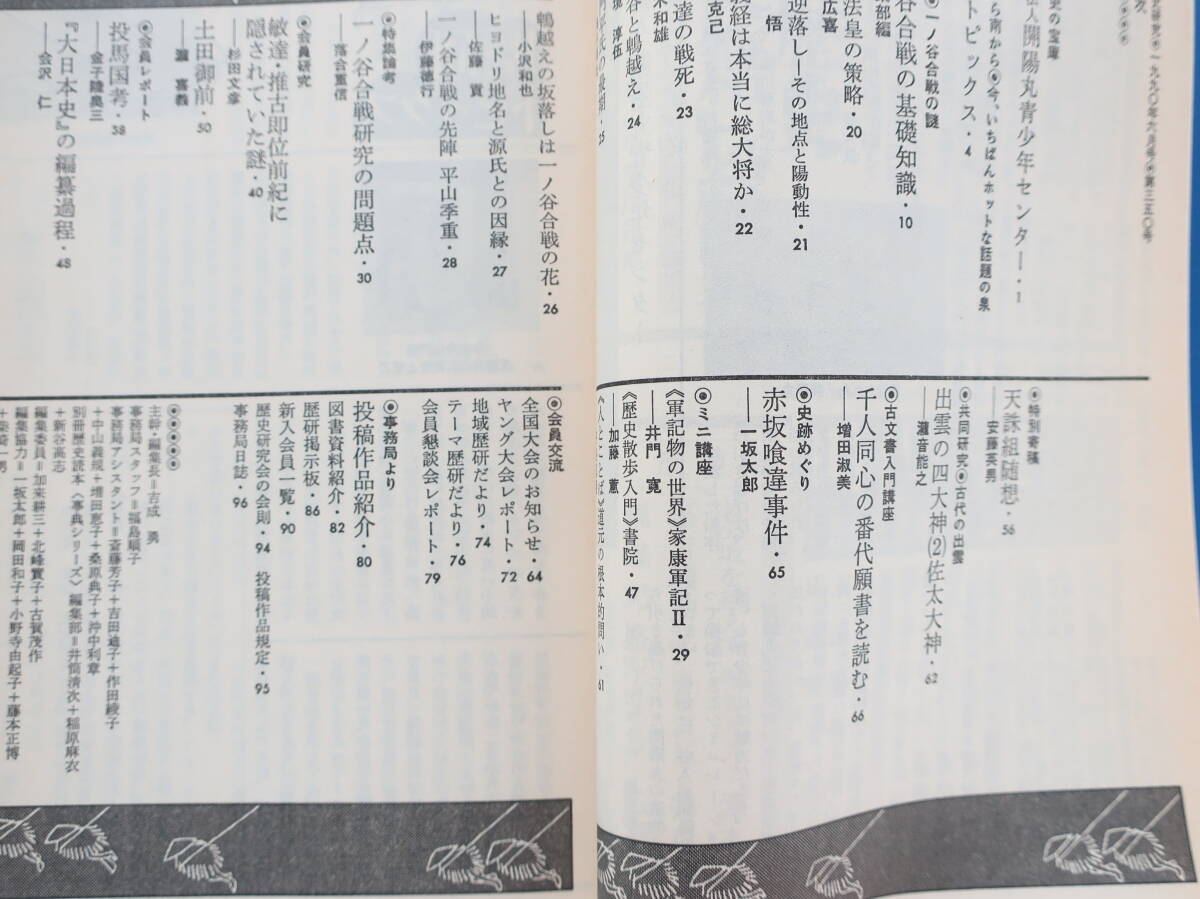 史研究●一九九〇年六月号●第三五〇号
次
史の宝庫
法人開陽丸青少年センター・1
ら南から●今、いちばんホットな話題の泉
トピックス・4
●一ノ谷合戦の謎
谷合戦の基礎知識・10
集部編
法皇の策略・20
広喜
逆落し―その地点と陽動性・21
悟
義経は本当に総大将か・22
克己
達の戦死・23
米和雄
谷と鵯越え・24
淳伍
の最期・25
鵯越えの坂落しは一ノ谷合戦の花・26
――小沢和也
ヒヨドリ地名と源氏との因縁・27
――佐藤 實
一ノ谷合戦の先陣 平山季重・28
――伊藤德行
●特集論考
一ノ谷合戦研究の問題点・30
――落合重信
●会員研究
敏達・推古即位前紀に
隠されていた謎・40
――杉田文章
土田御前・50
――瀧 喜義
●会員レポート
投馬国考・38
――金子隆奥三
『大日本史』の編纂過程・48
――会沢 仁
●特別寄稿
天誅組随想・56
――安藤英男
●共同研究●古代の出雲
出雲の四大神(2)佐太大神・62
――瀧音能之
●古文書入門講座
千人同心の番代願書を読む・66
――増田淑美
●史跡めぐり
赤坂喰違事件・65
――一坂太郎
●ミニ講座
《軍記物の世界》家康軍記Ⅱ・29
――井門 寛
《歴史散歩入門》書院・47
――加藤 蕙
《人とことば》道元の根本的問い・61
●会員交流
全国大会のお知らせ・64
ヤング大会レポート・72
地域歴研だより・74
テーマ歴研だより・76
会員懇談会レポート・79
●事務局より
投稿作品紹介・80
図書資料紹介・82
歴研掲示板・86
新入会員一覧・90
歴史研究会の会則・94 投稿作品規定・95
事務局日誌・96
●●●●●
主幹・編集長=吉成 勇
事務局スタッフ=福島順子
事務局アシスタント=斎藤芳子+吉田迪子+作田綾子
+中山義規+増田恵子+桑原典子+沖中利章
別冊歴史読本〈事典シリーズ〉編集部=井筒清次+稲原麻衣
+新谷高志
編集委員=加来耕三+北峰實子+古賀茂作
編集協力=一坂太郎+岡田和子+小野寺由起子+藤本正博
+柴崎一男